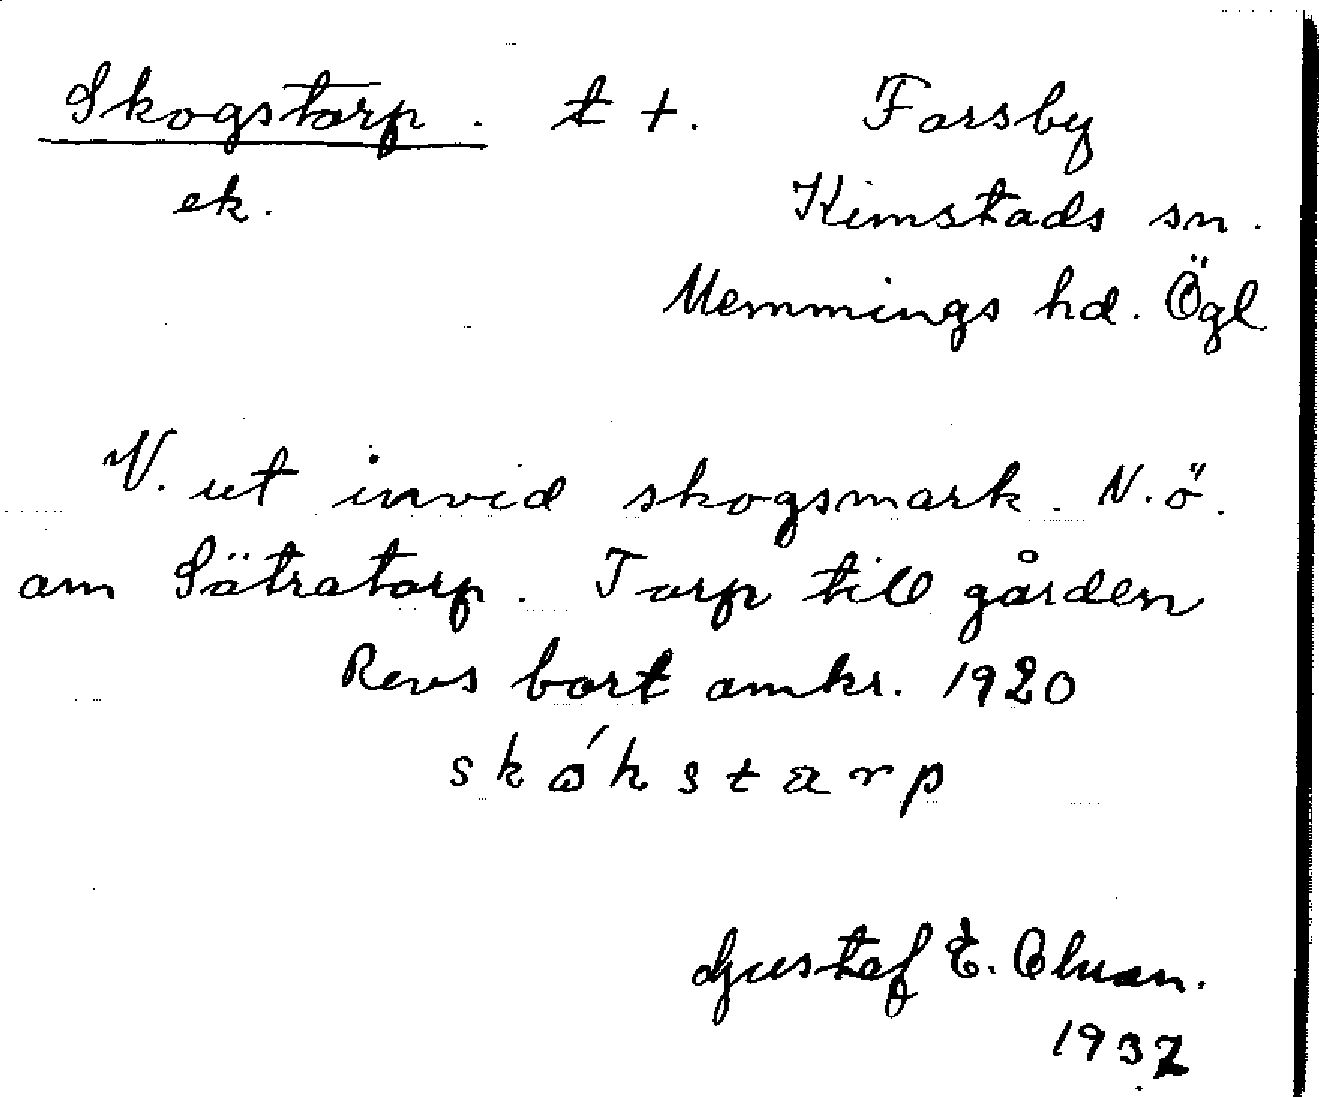 Skogstorp. t +. Forsby
ek. Kimstads sn.
Memmings hd. Ögl
V. ut invid skogsmark. N.ö.
om Sätratorp. Torp till gården
Revs bort omkr. 1920
skókstarp
Gustaf E.
1937